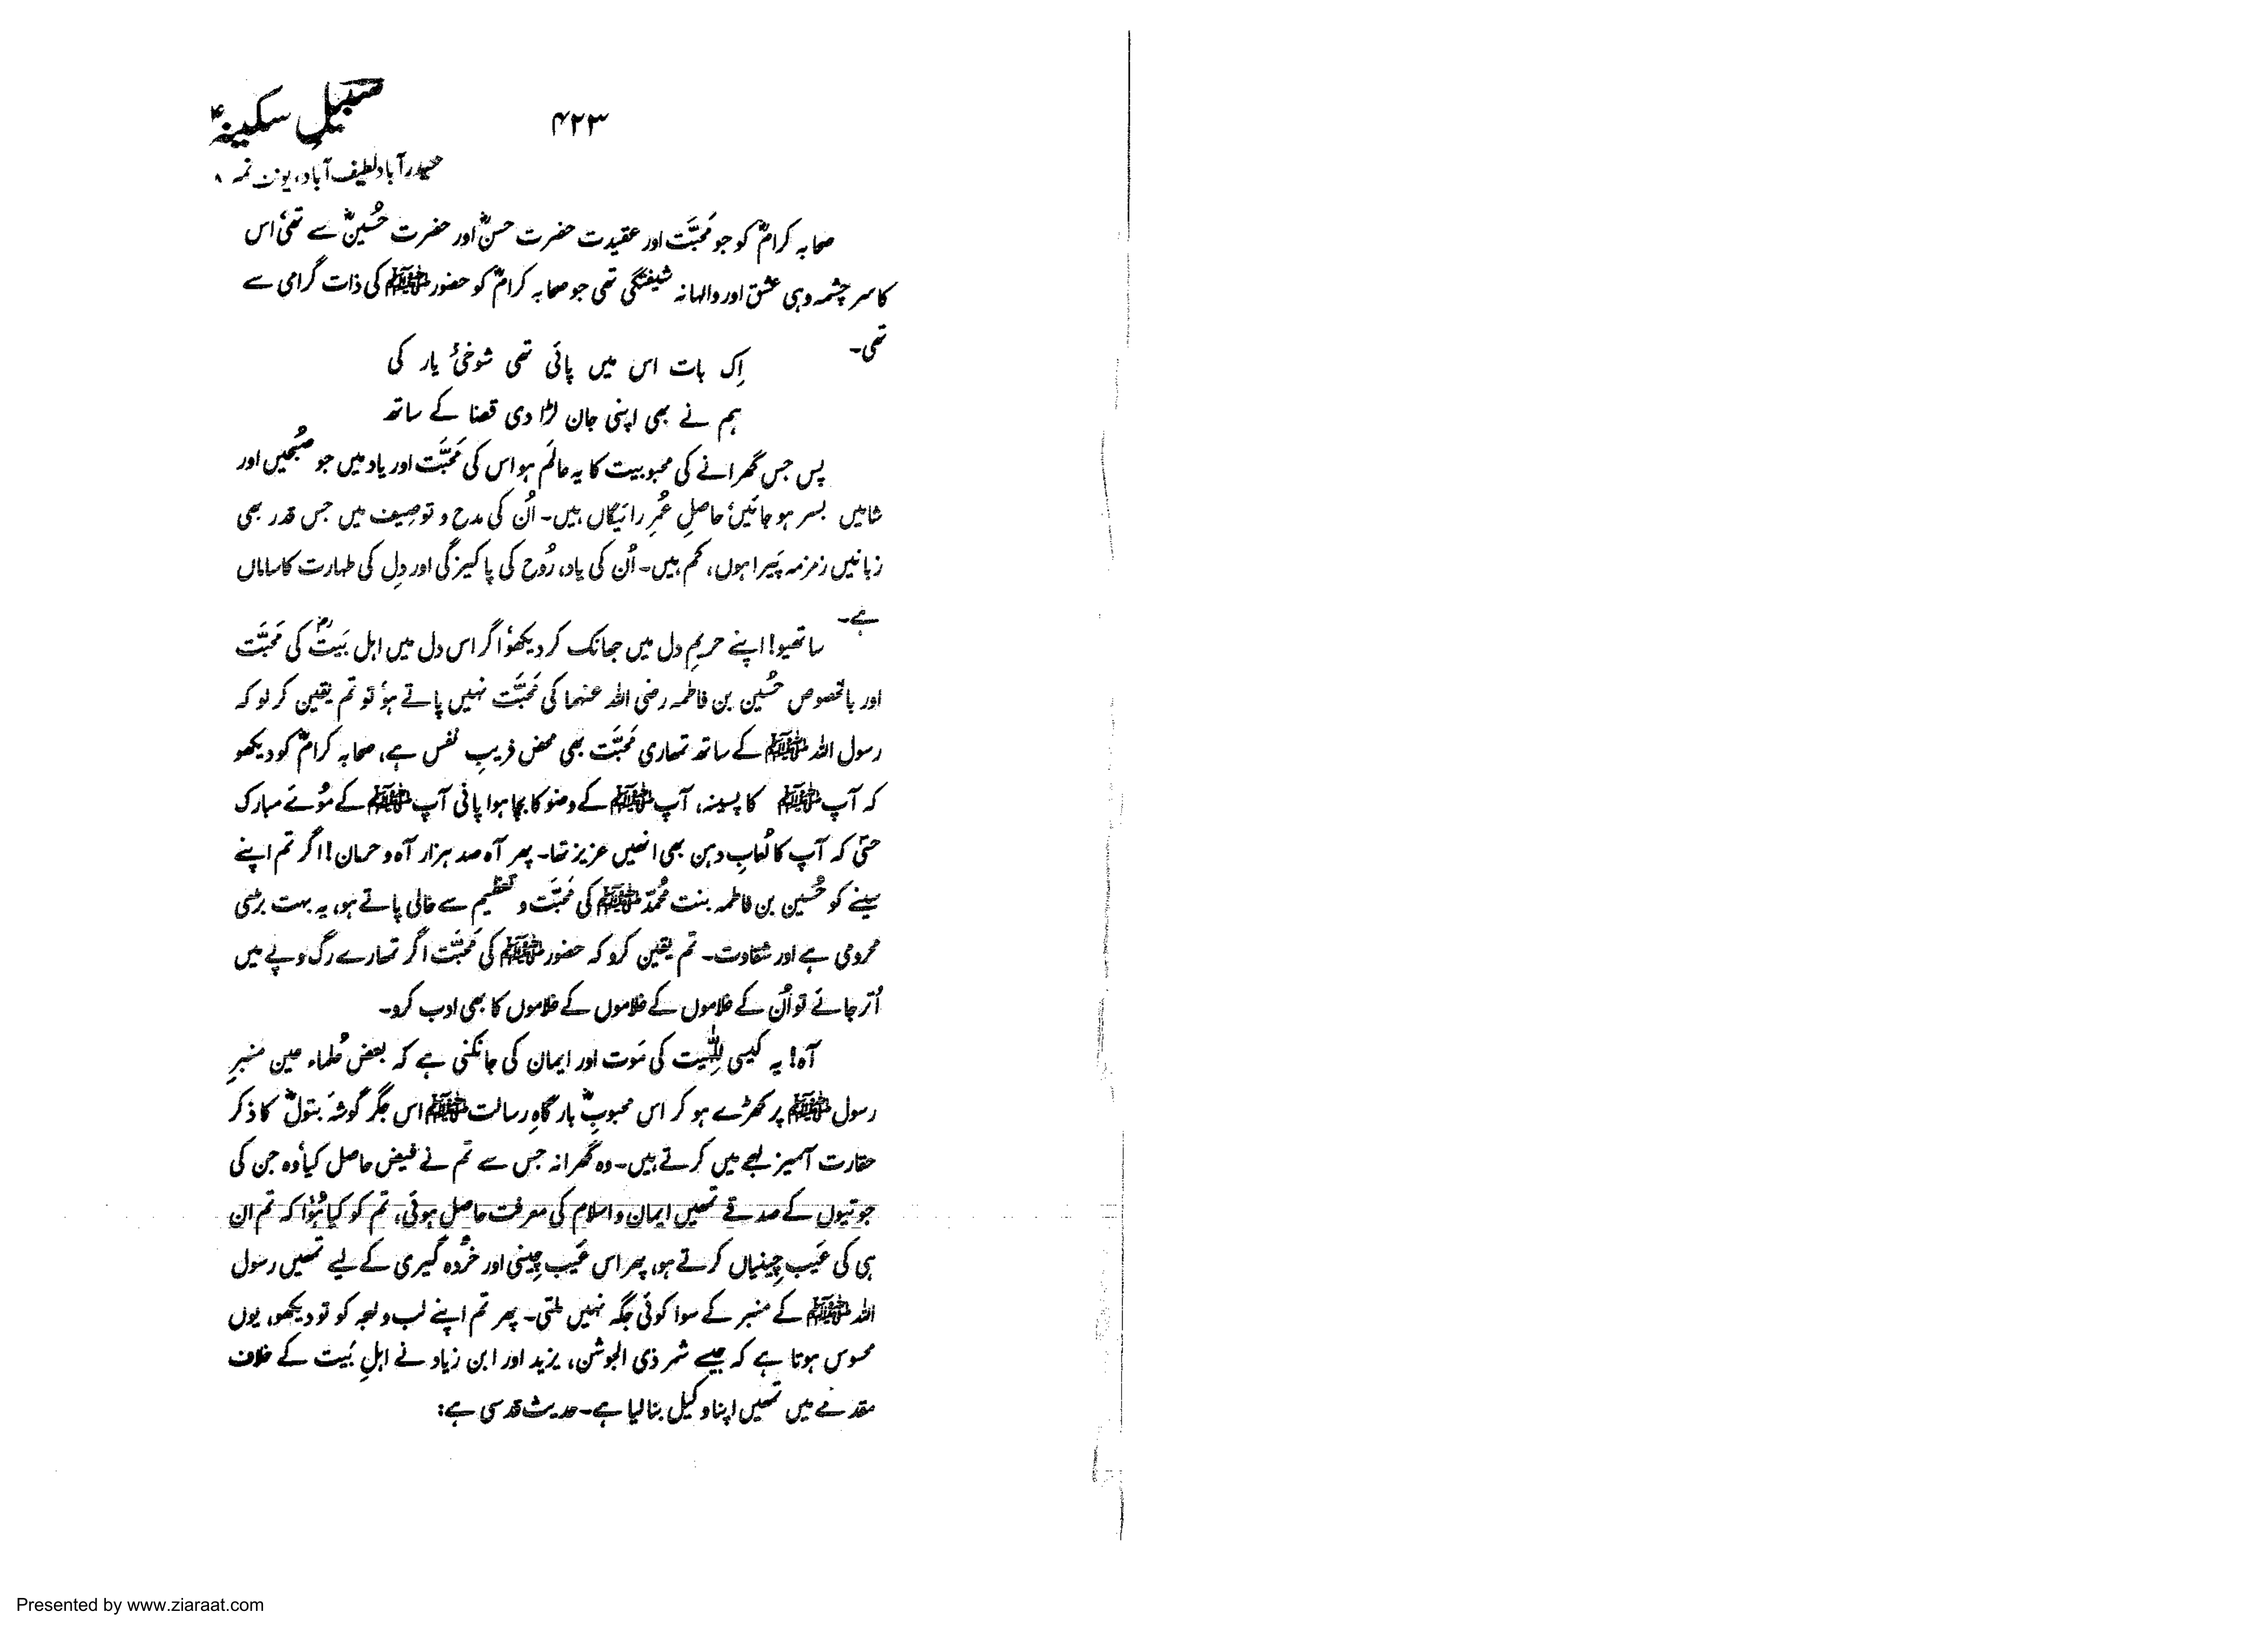 ۴۲۳
سبیلِ سکینہؑ
حیدرآباد لطیف آباد، یونٹ نمبر ۸
صحابہ کرامؓ کو جو مَحبّت اور عقیدت حضرت حسنؓ اور حضرت حُسینؓ سے تھی، اس
کا سرچشمہ وہی عشق اور والہانہ شیفتگی تھی جو صحابہ کرامؓ کو حضورﷺ کی ذات گرامی سے
تھی۔
اِک بات اس میں پائی تھی شوخیٔ یار کی
ہم نے بھی اپنی جان لڑا دی قضا کے ساتھ
پس جس گھرانے کی محبوبیت کا یہ عالَم ہو اس کی مَحبّت اور یاد میں جو صُبحیں اور
شامیں بسر ہو جائیں، حاصلِ عُمرِ رائیگاں ہیں۔ اُن کی مدح و توصِیف میں جس قدر بھی
زبانیں زمزمہ پَیرا ہوں، کم ہیں۔ اُن کی یاد، رُوح کی پاکیزگی اور دِل کی طہارت کا ساماں
ہے۔
ساتھیو! اپنے حریمِ دل میں جھانک کر دیکھو، اگر اس دل میں اہل بَیتؓ کی مَحبّت
اور بالخصوص حُسین بن فاطمہ رضی اللہ عنہما کی مَحبّت نہیں پاتے ہو، تو تم یقین کر لو کہ
رسول اللہﷺ کے ساتھ تمھاری مَحبّت بھی محض فریبِ نفس ہے، صحابہ کرامؓ کو دیکھو
کہ آپﷺ کا پسینہ، آپﷺ کے وضو کا بچا ہوا پانی آپﷺ کے مُوئے مبارک
حتیّٰ کہ آپ کا لُعابِ دہن بھی انھیں عزیز تھا۔ پھر آہ صد ہزار آہ و حرمان! اگر تم اپنے
سینے کو حُسین بن فاطمہ بنت مُحمّدﷺ کی مَحبّت و تعظیم سے خالی پاتے ہو، یہ بہت بڑی
محرومی ہے اور شقاوت۔ تم یقین کرو کہ حضورﷺ کی مَحبّت اگر تمھارے رگ و پے میں
اُتر جائے تو اُن کے غلاموں کے غلاموں کے غلاموں کا بھی ادب کرو۔
آہ! یہ کیسی لِلّٰہیت کی مَوت اور ایمان کی جانکنی ہے کہ بعض عُلماء عین منبرِ
رسولﷺ پر کھڑے ہو کر اس محبوبِؓ بارگاہِ رسالتﷺ اس جگر گوشۂ بتولؓ کا ذکر
حقارت آمیز لہجے میں کرتے ہیں۔ وہ گھرانہ جس سے تم نے فیض حاصل کیا، وہ جن کی
جوتیوں کے صدقے تمھیں ایمان و اسلام کی معرفت حاصل ہوئی، تم کو کیا ہُوا کہ تم ان
ہی کی عَیب چِینیاں کرتے ہو، پھر اس عَیب چِینی اور خُردہ گیری کے لیے تمھیں رسول
اللہﷺ کے منبر کے سوا کوئی جگہ نہیں ملتی۔ پھر تم اپنے لب و لہجہ کو تو دیکھو، یوں
محسوس ہوتا ہے کہ جیسے شمر ذی الجوشن، یزید اور ابن زیاد نے اہلِ بَیت کے خلاف
مقدمے میں تمھیں اپنا وکیل بنا لیا ہے۔ حدیث قدسی ہے:
Presented by www.ziaraat.com